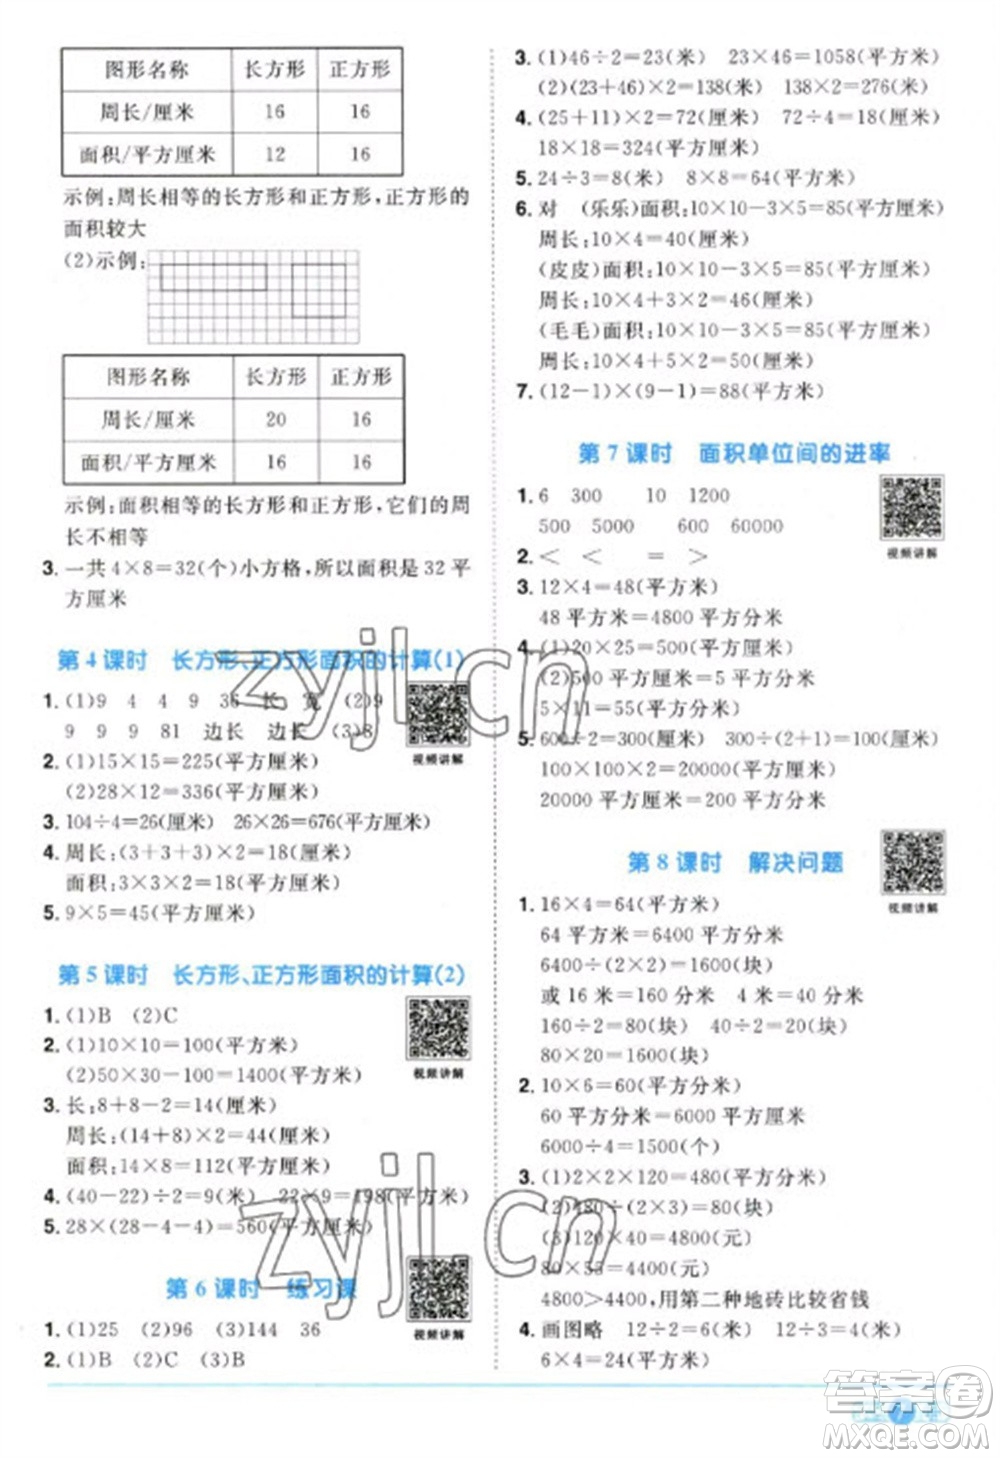 图形名称 长方形 正方形
周长/厘米 16 16
面积/平方厘米 12 16
示例:周长相等的长方形和正方形,正方形的
面积较大
(2)示例:
图形名称 长方形 正方形
周长/厘米 20 16
面积/平方厘米 16 16
示例:面积相等的长方形和正方形,它们的周
长不相等
3. 一共4×8=32(个)小方格,所以面积是32平
方厘米
第4课时 长方形、正方形面积的计算(1)
1. (1)9 4 4 9 36 长 宽 (2)9
9 9 9 81 边长 边长 (3)8
视频讲解
2. (1)15×15=225(平方厘米)
(2)28×12=336(平方厘米)
3. 104÷4=26(厘米) 26×26=676(平方厘米)
4. 周长:(3+3+3)×2=18(厘米)
面积:3×3×2=18(平方厘米)
5. 9×5=45(平方厘米)
第5课时 长方形、正方形面积的计算(2)
1. (1)B (2)C
2. (1)10×10=100(平方米)
(2)50×30-100=1400(平方米)
视频讲解
3. 长:8+8-2=14(厘米)
周长:(14+8)×2=44(厘米)
面积:14×8=112(平方厘米)
4. (40-22)÷2=9(米) 22×9=198(平方米)
5. 28×(28-4-4)=560(平方厘米)
第6课时 练习课
1. (1)25 (2)96 (3)144 36
视频讲解
2. (1)B (2)C (3)B
3. (1)46÷2=23(米) 23×46=1058(平方米)
(2)(23+46)×2=138(米) 138×2=276(米)
4. (25+11)×2=72(厘米) 72÷4=18(厘米)
18×18=324(平方厘米)
5. 24÷3=8(厘米) 8×8=64(平方厘米)
6. 对 (乐乐)面积:10×10-3×5=85(平方厘米)
周长:10×4=40(厘米)
(皮皮)面积:10×10-3×5=85(平方厘米)
周长:10×4+3×2=46(厘米)
(毛毛)面积:10×10-3×5=85(平方厘米)
周长:10×4+5×2=50(厘米)
7. (12-1)×(9-1)=88(平方米)
第7课时 面积单位间的进率
1. 6 300 10 1200
500 5000 600 60000
视频讲解
2. < < = >
3. 12×4=48(平方米)
48平方米=4800平方分米
4. (1)20×25=500(平方厘米)
(2)500平方厘米=5平方分米
5×11=55(平方分米)
5. 600÷2=300(厘米) 300÷(2+1)=100(厘米)
100×100×2=20000(平方厘米)
20000平方厘米=200平方分米
第8课时 解决问题
视频讲解
1. 16×4=64(平方米)
64平方米=6400平方分米
6400÷(2×2)=1600(块)
或16米=160分米 4米=40分米
160÷2=80(块) 40÷2=20(块)
80×20=1600(块)
2. 10×6=60(平方分米)
60平方分米=6000平方厘米
6000÷4=1500(个)
3. (1)2×2×120=480(平方分米)
(2)480÷(3×2)=80(块)
(3)120×40=4800(元)
80×55=4400(元)
4800>4400,用第二种地砖比较省钱
4. 画图略 12÷2=6(米) 12÷3=4(米)
6×4=24(平方米)
7
zyjl.cn
zyjl.cn
答案卷
MXQE.COM